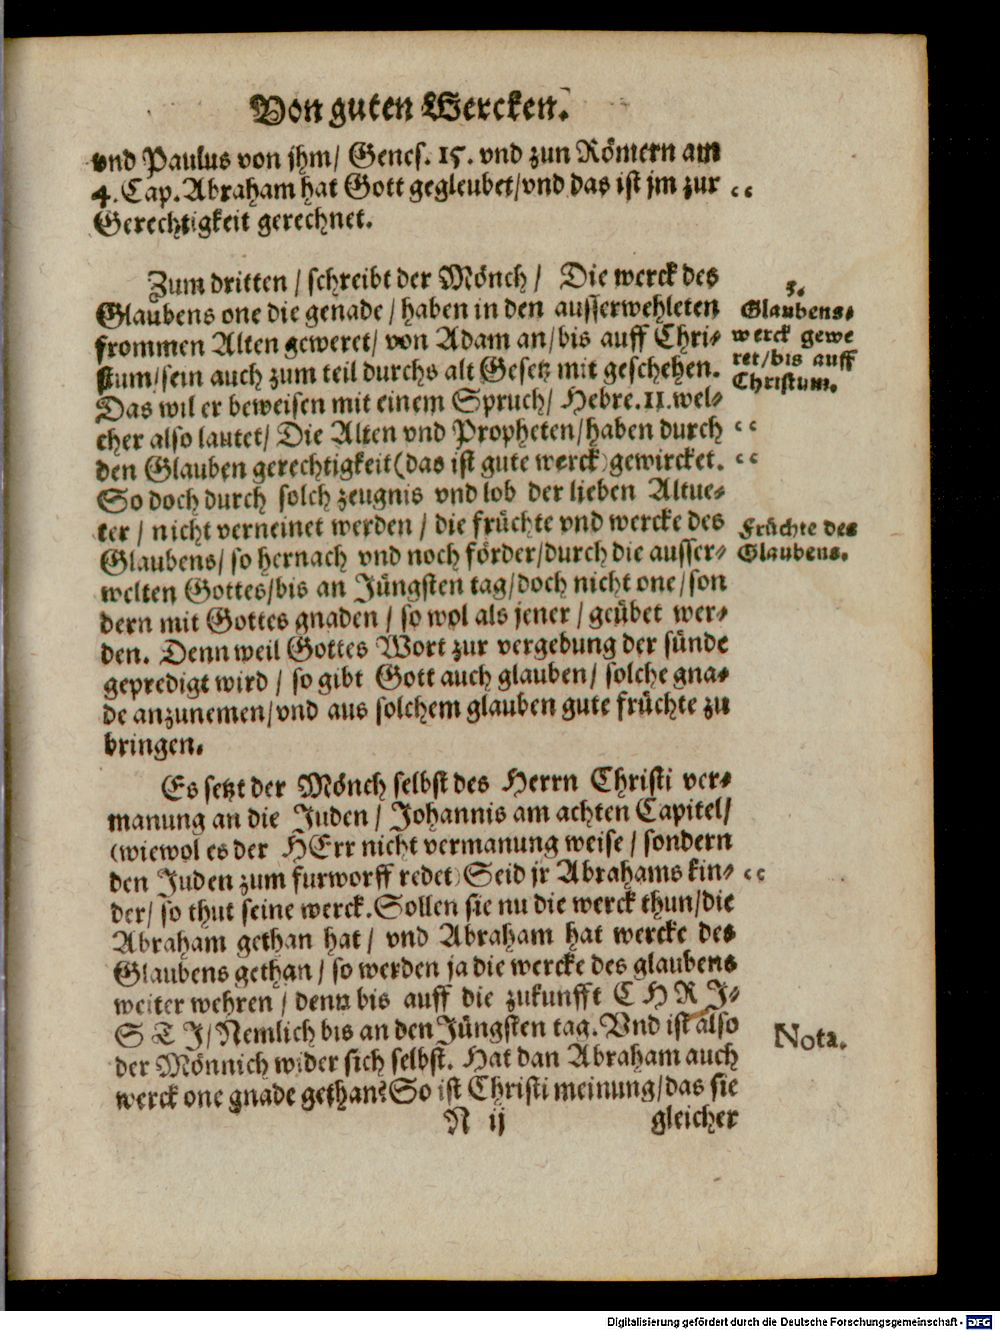 Von guten Wercken.
vnd Paulus von jhm/ Genes. 15. vnd zun Römern am
4. Cap. Abraham hat Gott gegleubet/vnd das ist jm zur
Gerechtigkeit gerechnet.
Zum dritten / schreibt der Mönch / Die werck des
Glaubens one die genade / haben in den ausserwehleten
frommen Alten geweret/ von Adam an/bis auff Chri-
stum/sein auch zum teil durchs alt Gesetz mit geschehen.
Das wil er beweisen mit einem Spruch/ Hebre. 11. wel-
cher also lautet/ Die Alten vnd Propheten/haben durch
den Glauben gerechtigkeit (das ist gute werck) gewircket.
So doch durch solch zeugnis vnd lob der lieben Altue-
ter / nicht verneinet werden / die früchte vnd wercke des
Glaubens/ so hernach vnd noch förder/durch die ausser-
welten Gottes/bis an Jüngsten tag/doch nicht one/son
dern mit Gottes gnaden / so wol als jener / geübet wer-
den. Denn weil Gottes Wort zur vergebung der sünde
gepredigt wird / so gibt Gott auch glauben/ solche gna-
de anzunemen/vnd aus solchem glauben gute früchte zu
bringen.
Es setzt der Mönch selbst des Herrn Christi ver-
manung an die Juden / Johannis am achten Capitel/
(wiewol es der HErr nicht vermanung weise / sondern
den Juden zum furworff redet) Seid jr Abrahams kin-
der/ so thut seine werck. Sollen sie nu die werck thun/die
Abraham gethan hat/ vnd Abraham hat wercke des
Glaubens gethan / so werden ja die wercke des glaubens
weiter wehren / denn bis auff die zukunfft CHRJ-
STJ/Nemlich bis an den Jüngsten tag. Vnd ist also
der Mönnich wider sich selbst. Hat dan Abraham auch
werck one gnade gethan? So ist Christi meinung/das sie
N ij gleicher
3.
Glaubens-
werck gewe
ret/bis auff
Christum.
Früchte des
Glaubens.
Nota.
Digitalisierung gefördert durch die Deutsche Forschungsgemeinschaft - DFG